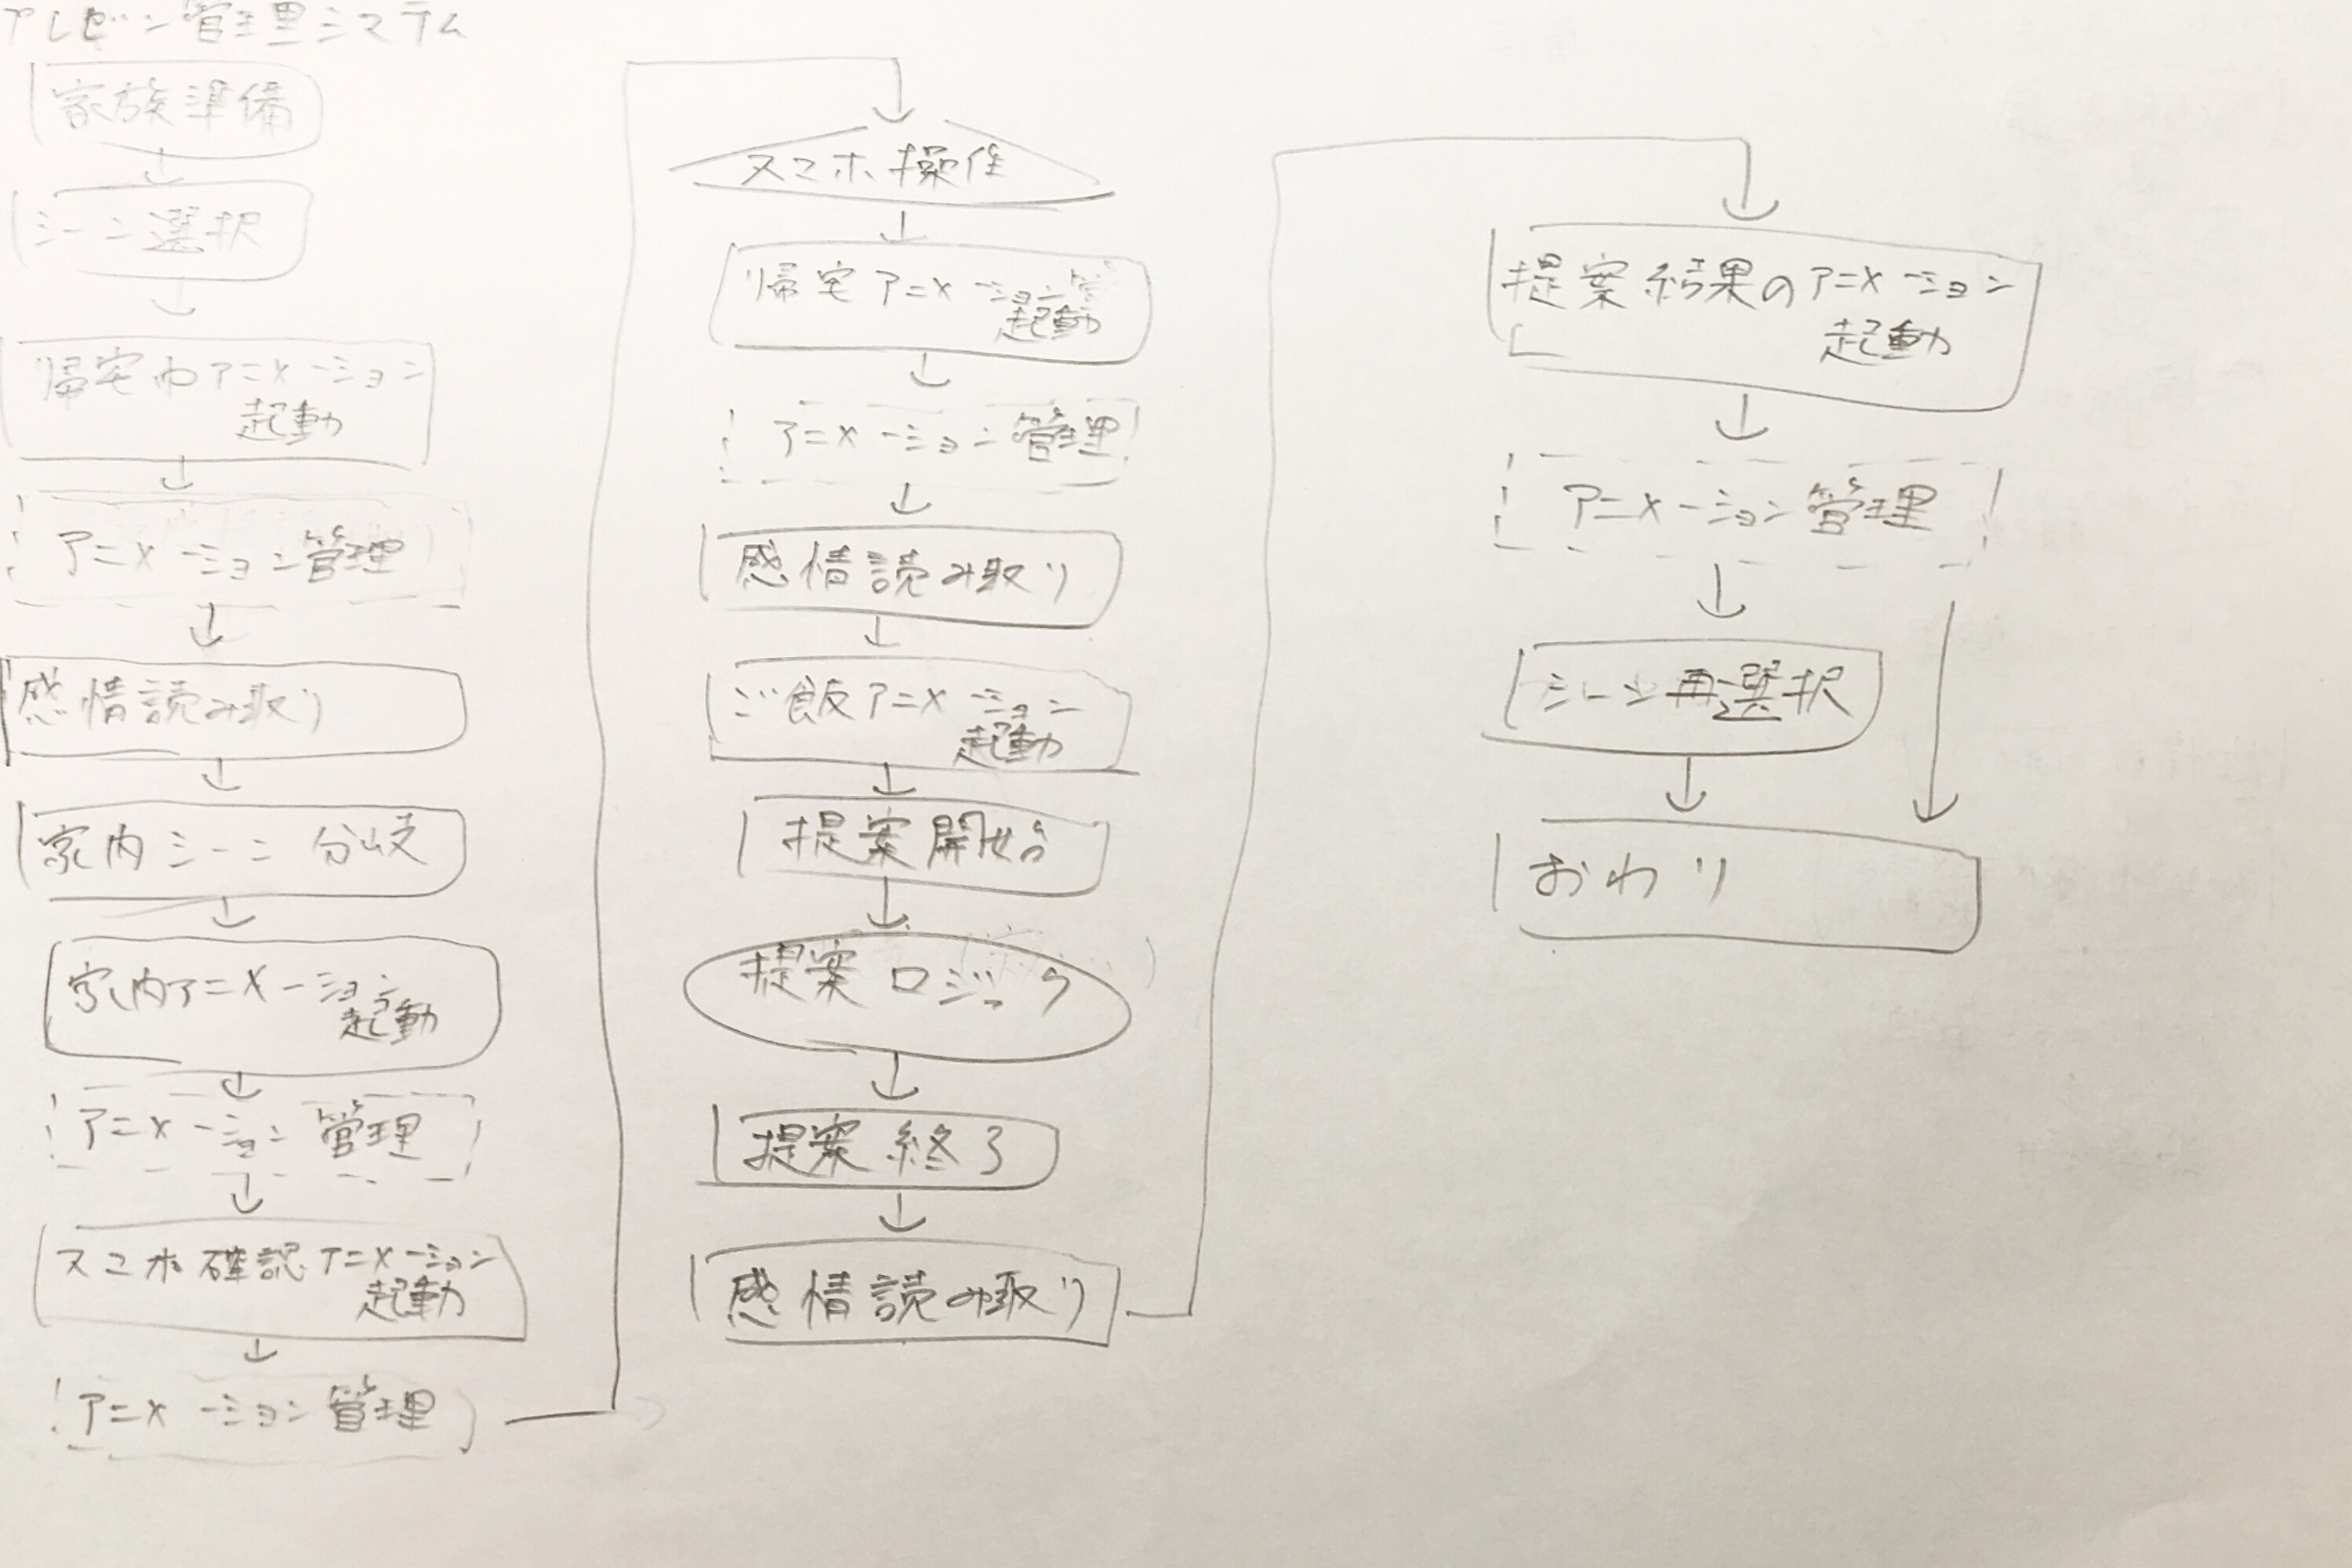 管理システム
家族準備
シーン選択
帰宅中アニメーション
起動
アニメーション管理
感情読み取り
家内シーン分岐
家内アニメーション
起動
アニメーション管理
スマホ確認アニメーション
起動
アニメーション管理
スマホ操作
帰宅アニメーション
起動
アニメーション管理
感情読み取り
ご飯アニメーション
起動
提案開始
提案ロジック
提案終了
感情読み取り
提案結果のアニメーション
起動
アニメーション管理
シーン再選択
おわり